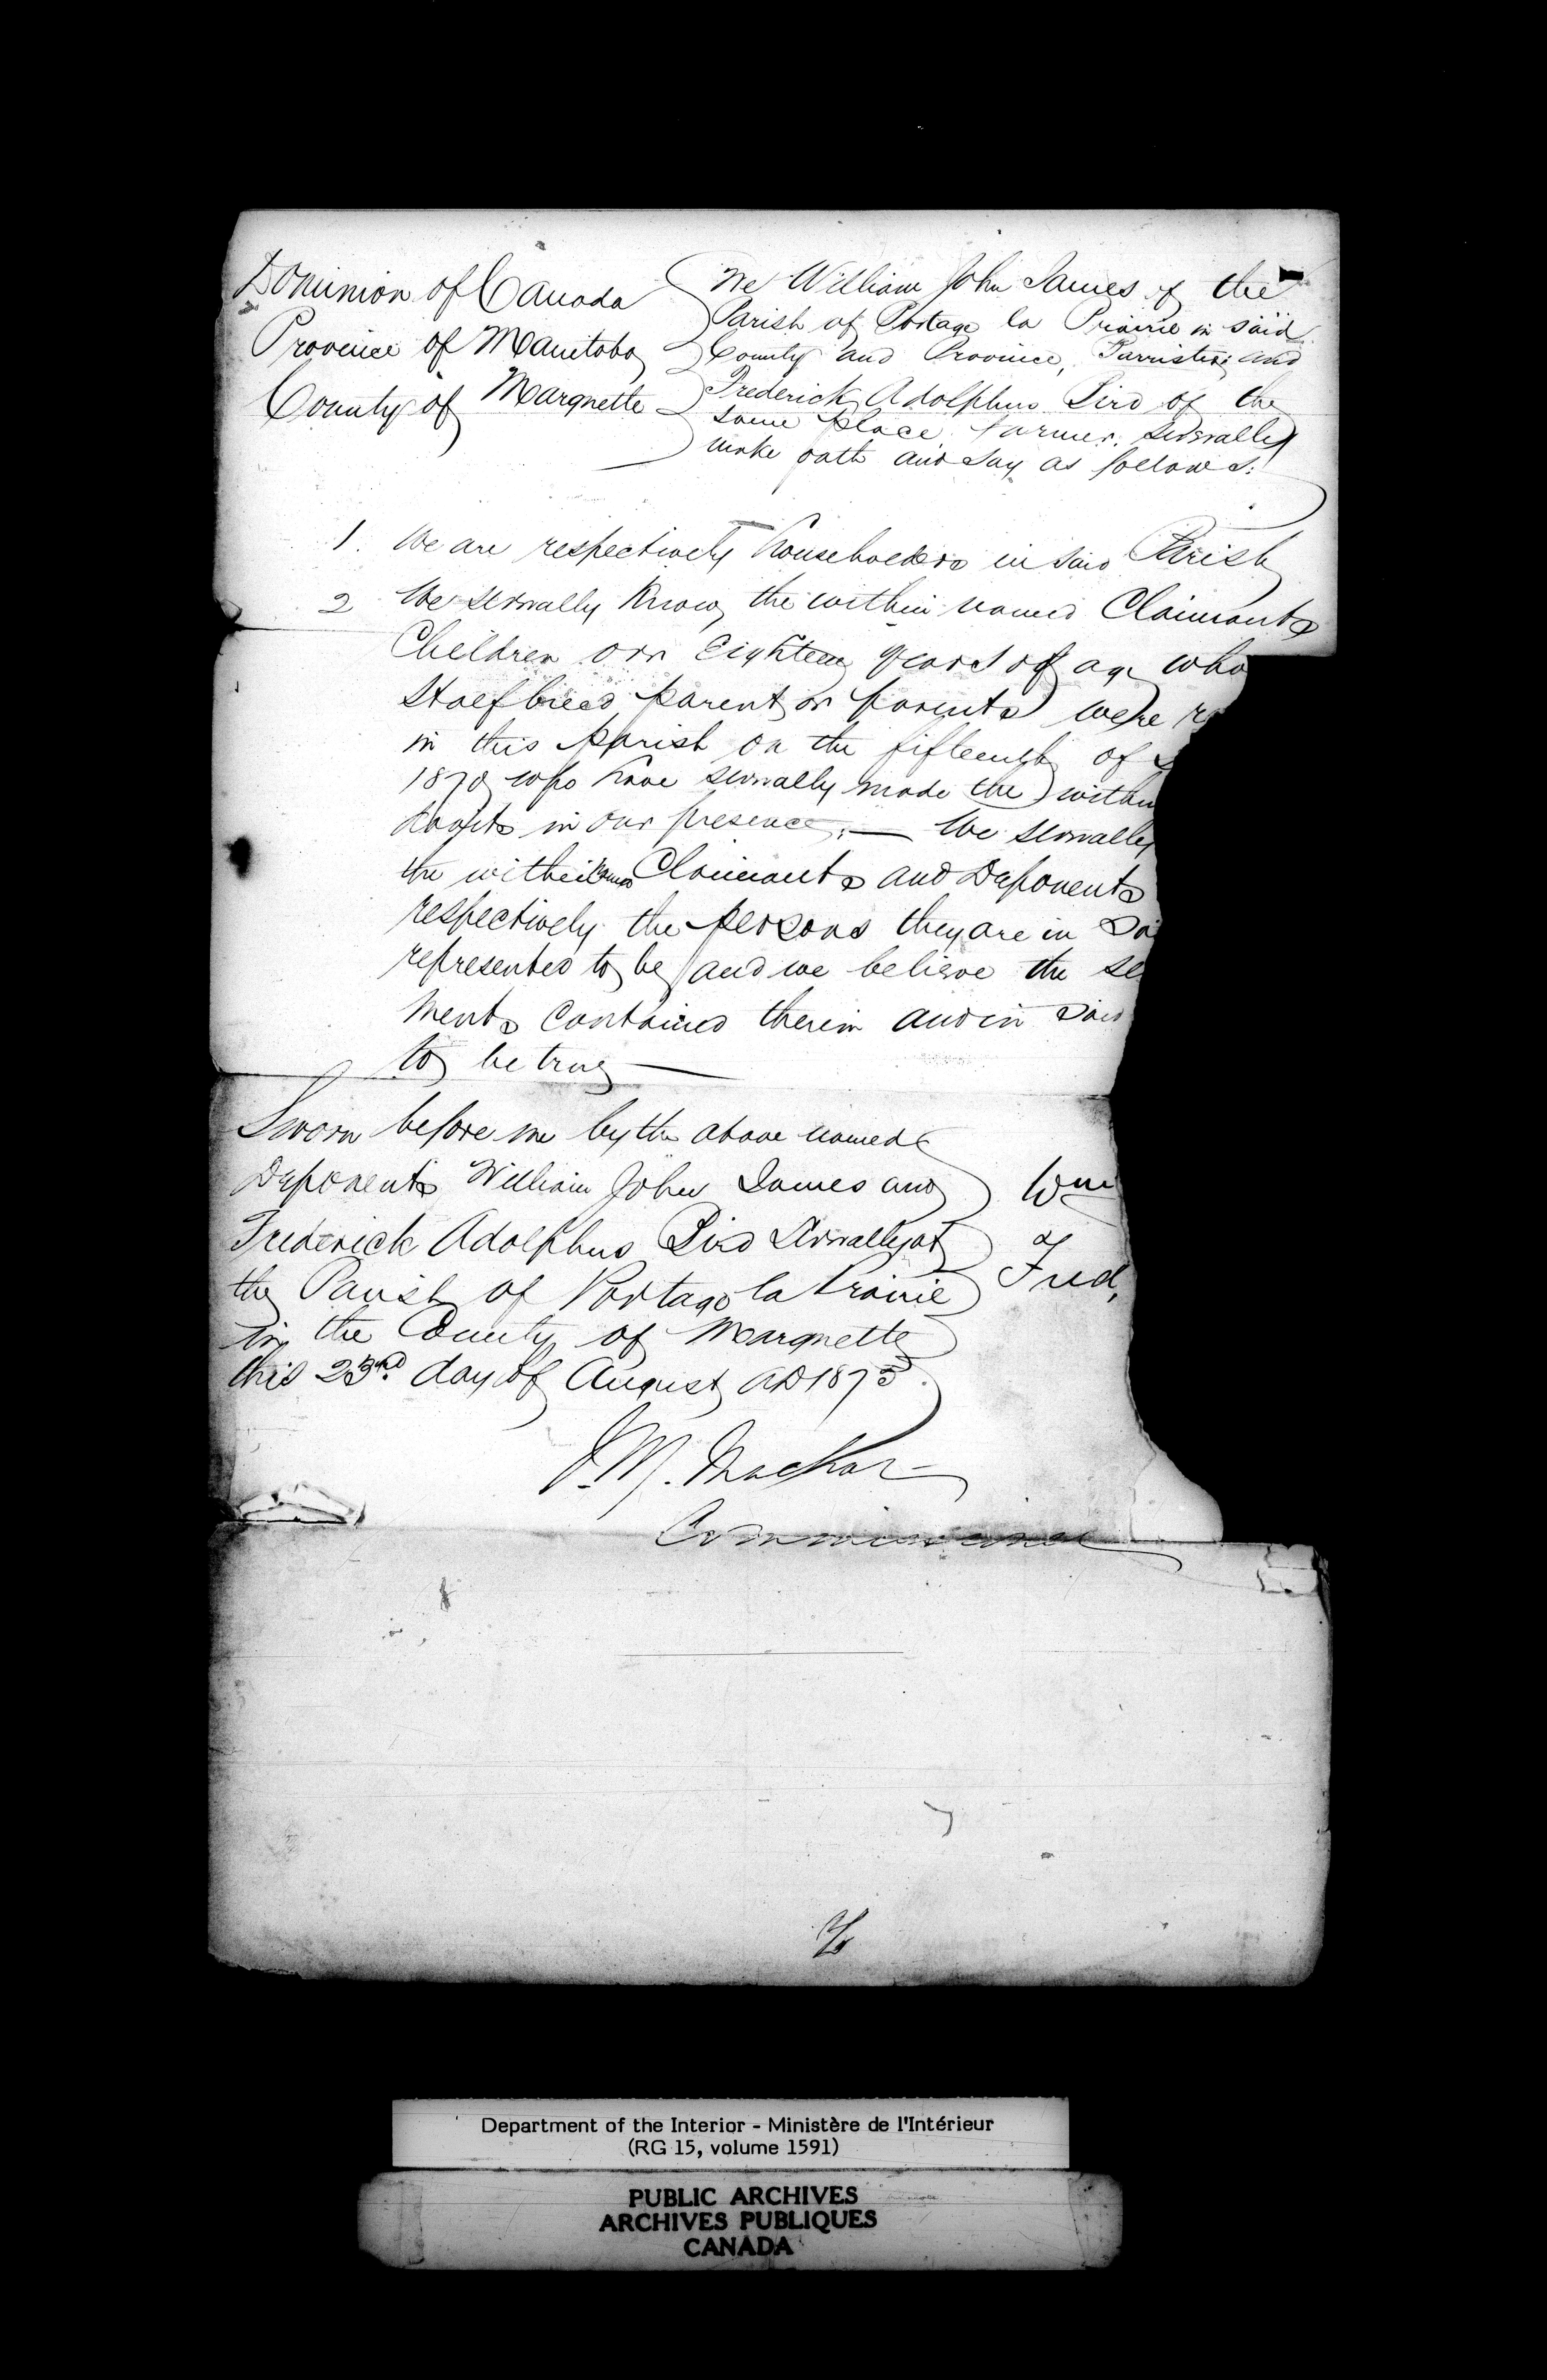 Dominion of Canada
Province of Manitoba
County of Marquette
We William John James of the
Parish of Portage la Prairie in said
County and Province, Barrister and
Frederick Adolphus Bird of the
same place Farmer. severally
make oath and say as follows:
1. We are respectively householders in said Parish
2 We severally know the within named Claimants
Children over Eighteen years of age who
Halfbreed parent or parents were re
in this parish on the fifteenth of
1870 who have severally made the within
in our presence; — We severally
the within named Claimants and Deponents
respectively the persons they are in sa
represented to be and we believe the se
ments contained therein and in said
to be true —
Sworn before me by the above named
Deponents William John James and
Frederick Adolphus Bird severally at
the Parish of Portage la Prairie
in the County of Marquette
this 23rd day of August AD 1875.
Wm
Fred,
Commissioner
Department of the Interior - Ministère de l'Intérieur
(RG 15, volume 1591)
PUBLIC ARCHIVES
ARCHIVES PUBLIQUES
CANADA